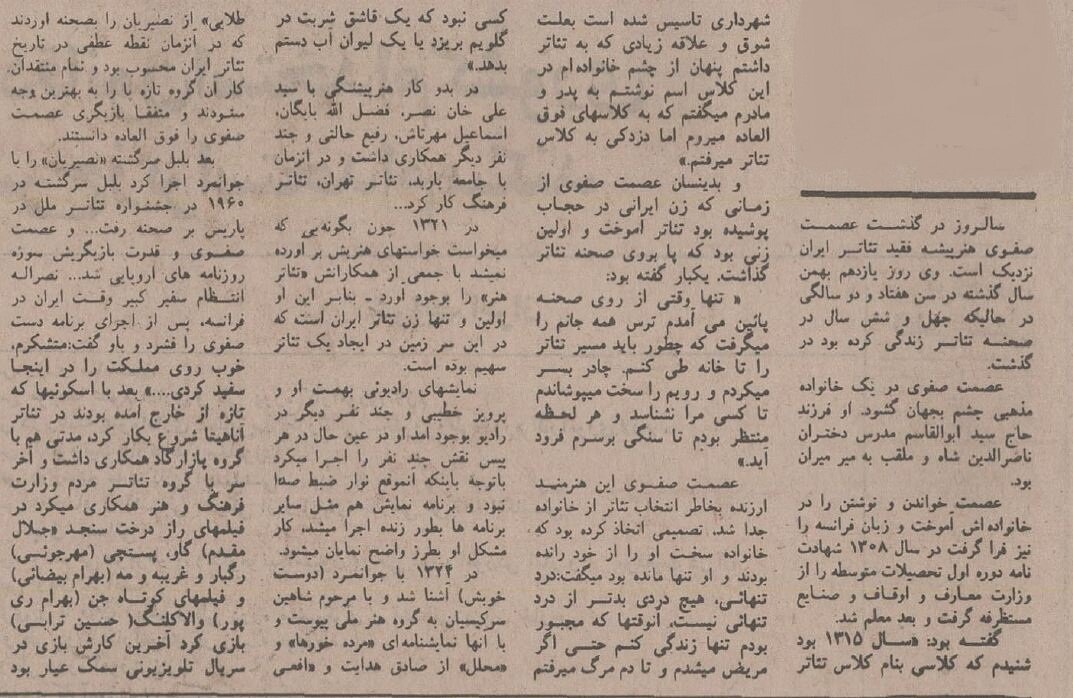 سالروز در گذشت عصمت
صفوی هنرپیشه فقید تئاتر ایران
نزدیک است. وی روز یازدهم بهمن
سال گذشته در سن هفتاد و دو سالگی
در حالیکه چهل و شش سال در
صحنه تئاتر زندگی کرده بود در
گذشت.
عصمت صفوی در یک خانواده
مذهبی چشم بجهان گشود. او فرزند
حاج سید ابوالقاسم مدرس دختران
ناصرالدین شاه و ملقب به میر میران
بود.
عصمت خواندن و نوشتن را در
خانواده اش آموخت و زبان فرانسه را
نیز فرا گرفت در سال ۱۳۰۸ شهادت
نامه دوره اول تحصیلات متوسطه را از
وزارت معارف و اوقاف و صنایع
مستظرفه گرفت و بعد معلم شد.
گفته بود: «سال ۱۳۱۵ بود
شنیدم که کلاسی بنام کلاس تئاتر
شهرداری تاسیس شده است بعلت
شوق و علاقه زیادی که به تئاتر
داشتم پنهان از چشم خانواده ام در
این کلاس اسم نوشتم به پدر و
مادرم میگفتم که به کلاسهای فوق
العاده میروم اما دزدکی به کلاس
تئاتر میرفتم.»
و بدینسان عصمت صفوی از
زمانی که زن ایرانی در حجاب
پوشیده بود تئاتر آموخت و اولین
زنی بود که پا بروی صحنه تئاتر
گذاشت. یکبار گفته بود:
« تنها وقتی از روی صحنه
پائین می آمدم ترس همه جانم را
میگرفت که چطور باید مسیر تئاتر
را تا خانه طی کنم. چادر بسر
میکردم و رویم را سخت میپوشاندم
تا کسی مرا نشناسد و هر لحظه
منتظر بودم تا سنگی برسرم فرود
آید.»
عصمت صفوی این هنرمند
ارزنده بخاطر انتخاب تئاتر از خانواده
جدا شد. تصمیمی اتخاذ کرده بود که
خانواده سخت او را از خود رانده
بودند و او تنها مانده بود میگفت:درد
تنهائی، هیچ دردی بدتر از درد
تنهائی نیست، آنوقتها که مجبور
بودم تنها زندگی کنم حتی اگر
مریض میشدم و تا دم مرگ میرفتم
کسی نبود که یک قاشق شربت در
گلویم بریزد یا یک لیوان آب دستم
بدهد.»
در بدو کار هنرپیشگی با سید
علی خان نصر، فضل الله بایگان،
اسماعیل مهرتاش، رفیع حالتی و چند
نفر دیگر همکاری داشت و در آنزمان
با جامعه باربد، تئاتر تهران، تئاتر
فرهنگ کار کرد...
در ۱۳۲۱ چون بگونه یی که
میخواست خواستهای هنریش بر آورده
نمیشد با جمعی از همکارانش «تئاتر
هنر» را بوجود آورد ـ بنابر این او
اولین و تنها زن تئاتر ایران است که
در این سر زمین در ایجاد یک تئاتر
سهیم بوده است.
نمایشهای رادیونی بهمت او و
پرویز خطیبی و چند نفر دیگر در
رادیو بوجود آمد او در عین حال در هر
پیس نقش چند نفر را اجرا میکرد
باتوجه باینکه آنموقع نوار ضبط صدا
نبود و برنامه نمایش هم مثل سایر
برنامه ها بطور زنده اجرا میشد، کار
مشکل او بطرز واضح نمایان میشود.
در ۱۳۲۴ با جوانمرد (دوست
خوبش) آشنا شد و با مرحوم شاهین
سرکیسیان به گروه هنر ملی پیوست و
با آنها نمایشنامه ای «مرده خورها» و
«محلل» از صادق هدایت و «افعی
طلایی» از نصیریان را بصحنه آوردند
که در آنزمان نقطه عطفی در تاریخ
تئاتر ایران محسوب بود و تمام منتقدان
کار آن گروه تازه پا را به بهترین وجه
ستودند و متفقا بازیگری عصمت
صفوی را فوق العاده دانستند.
بعد بلبل سرگشته «نصیریان» را با
جوانمرد اجرا کرد بلبل سرگشته در
۱۹۶۰ در جشنواره تئاتر ملل در
پاریس بر صحنه رفت... و عصمت
صفوی و قدرت بازیگریش سوژه
روزنامه های اروپایی شد... نصراله
انتظام سفیر کبیر وقت ایران در
فرانسه، پس از اجرای برنامه دست
صفوی را فشرد و باو گفت:متشکرم،
خوب روی مملکت را در اینجا
سفید کردی....» بعد با اسکوئیها که
تازه از خارج آمده بودند در تئاتر
آناهیتا شروع بکار کرد، مدتی هم با
گروه پازارگاد همکاری داشت و آخر
سر با گروه تئاتر مردم وزارت
فرهنگ و هنر همکاری میکرد در
فیلمهای راز درخت سنجد «جلال
مقدم) گاو، پستچی (مهرجوئی)
رگبار و غریبه و مه (بهرام بیضائی)
و فیلمهای کوتاه جن (بهرام ری
پور) والاکلنگ( حسین ترابی)
بازی کرد آخرین کارش بازی در
سریال تلویزیونی سمک عیار بود